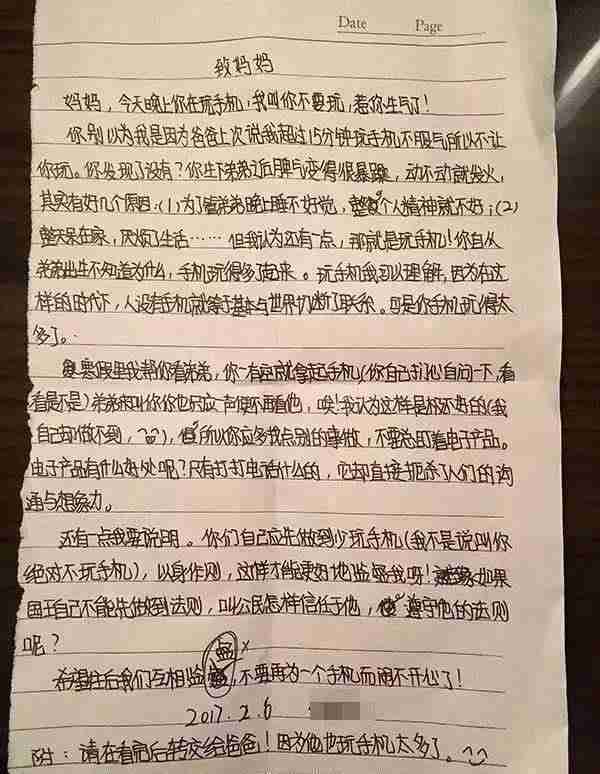 Date Page
致妈妈
妈妈，今天晚上你在玩手机，我叫你不要玩，惹你生气了！
你别以为我是因为爸爸上次说我超过15分钟玩手机不服气所以不让
你玩。你发现了没有？你生下弟弟后脾气变得很暴躁，动不动就发火，
其实有好几个原因：(1)为了值弟弟晚上睡不好觉，整个人精神就不好；(2)
整天呆在家，厌烦了生活……但我认为还有一点，那就是玩手机！你自从
弟弟出生不知道为什么，手机玩得多了起来。玩手机我可以理解，因为在这
样的时代下，人没有手机就等于基本与世界切断了联系。可是你手机玩得太
多了。
寒假里我帮你看弟弟，你一有空就拿起手机(你自己扪心自问一下，看
看是不是)弟弟来叫你你也只应一声便不再看他，唉！我认为这样是极不好的(我
自己却做不到，)，所以你应多找点别的事做，不要总盯着电子产品。
电子产品有什么好处呢？只有打打电话什么的，它却直接扼杀了人们的沟
通与想象力。
还有一点我要说明。你们自己应先做到少玩手机(我不是说叫你
绝对不玩手机)，以身作则，这样才能更好地监督我呀！如果
国王自己不能先做到法则，叫公民怎样信任于他，遵守他的法则
呢？
希望往后我们互相监督，不要再为一个手机而闹不开心了！
2017.2.6
附：请在看完后转交给爸爸！因为他也玩手机太多了。